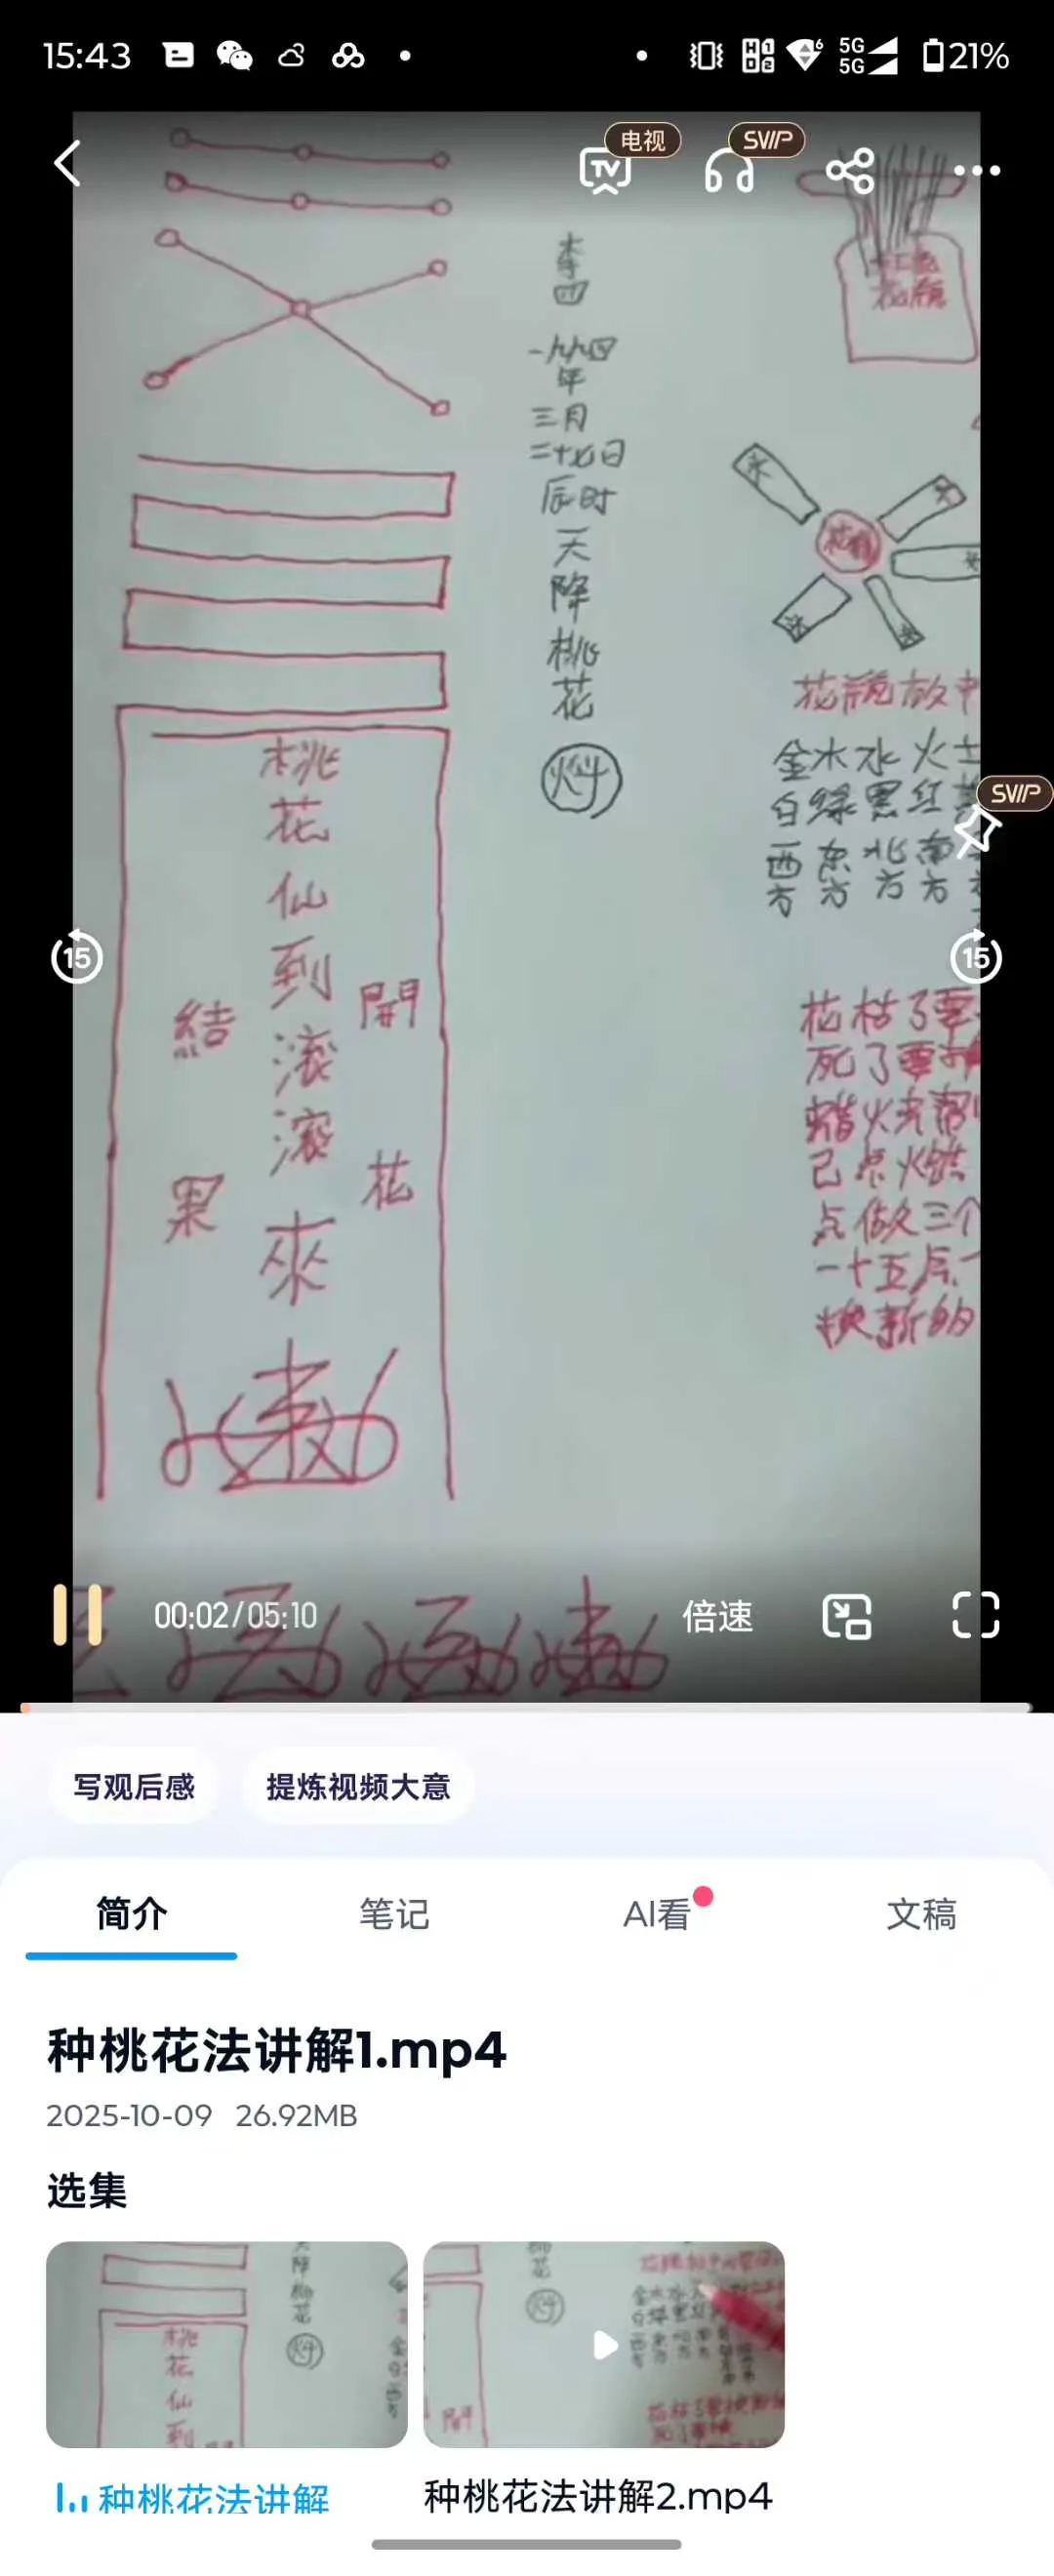 15:43
HD 1 2
6
5G
5G
21%
电视
SVIP
TV
李四
一九九四
年
三月
二十七日
辰时
天
降
桃
花
花瓶
花瓶放中
金木水火土
白绿黑红
西东北南
方方方方
SVIP
15
15
桃
花
仙
到
滚
滚
來
開
花
結
果
花枯了要
死了要
蜡火先帮
己点火烘
点做三个
一十五点一
换新的
00:02/05:10
倍速
写观后感
提炼视频大意
简介
笔记
AI看
文稿
种桃花法讲解1.mp4
2025-10-09 26.92MB
选集
降
桃
花
桃
花
仙
到
花
開
种桃花法讲解
种桃花法讲解2.mp4